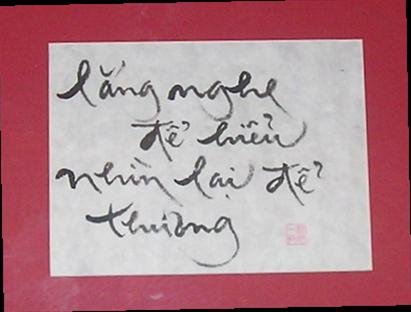 lắng nghe
để hiểu
nhìn lại để
thương